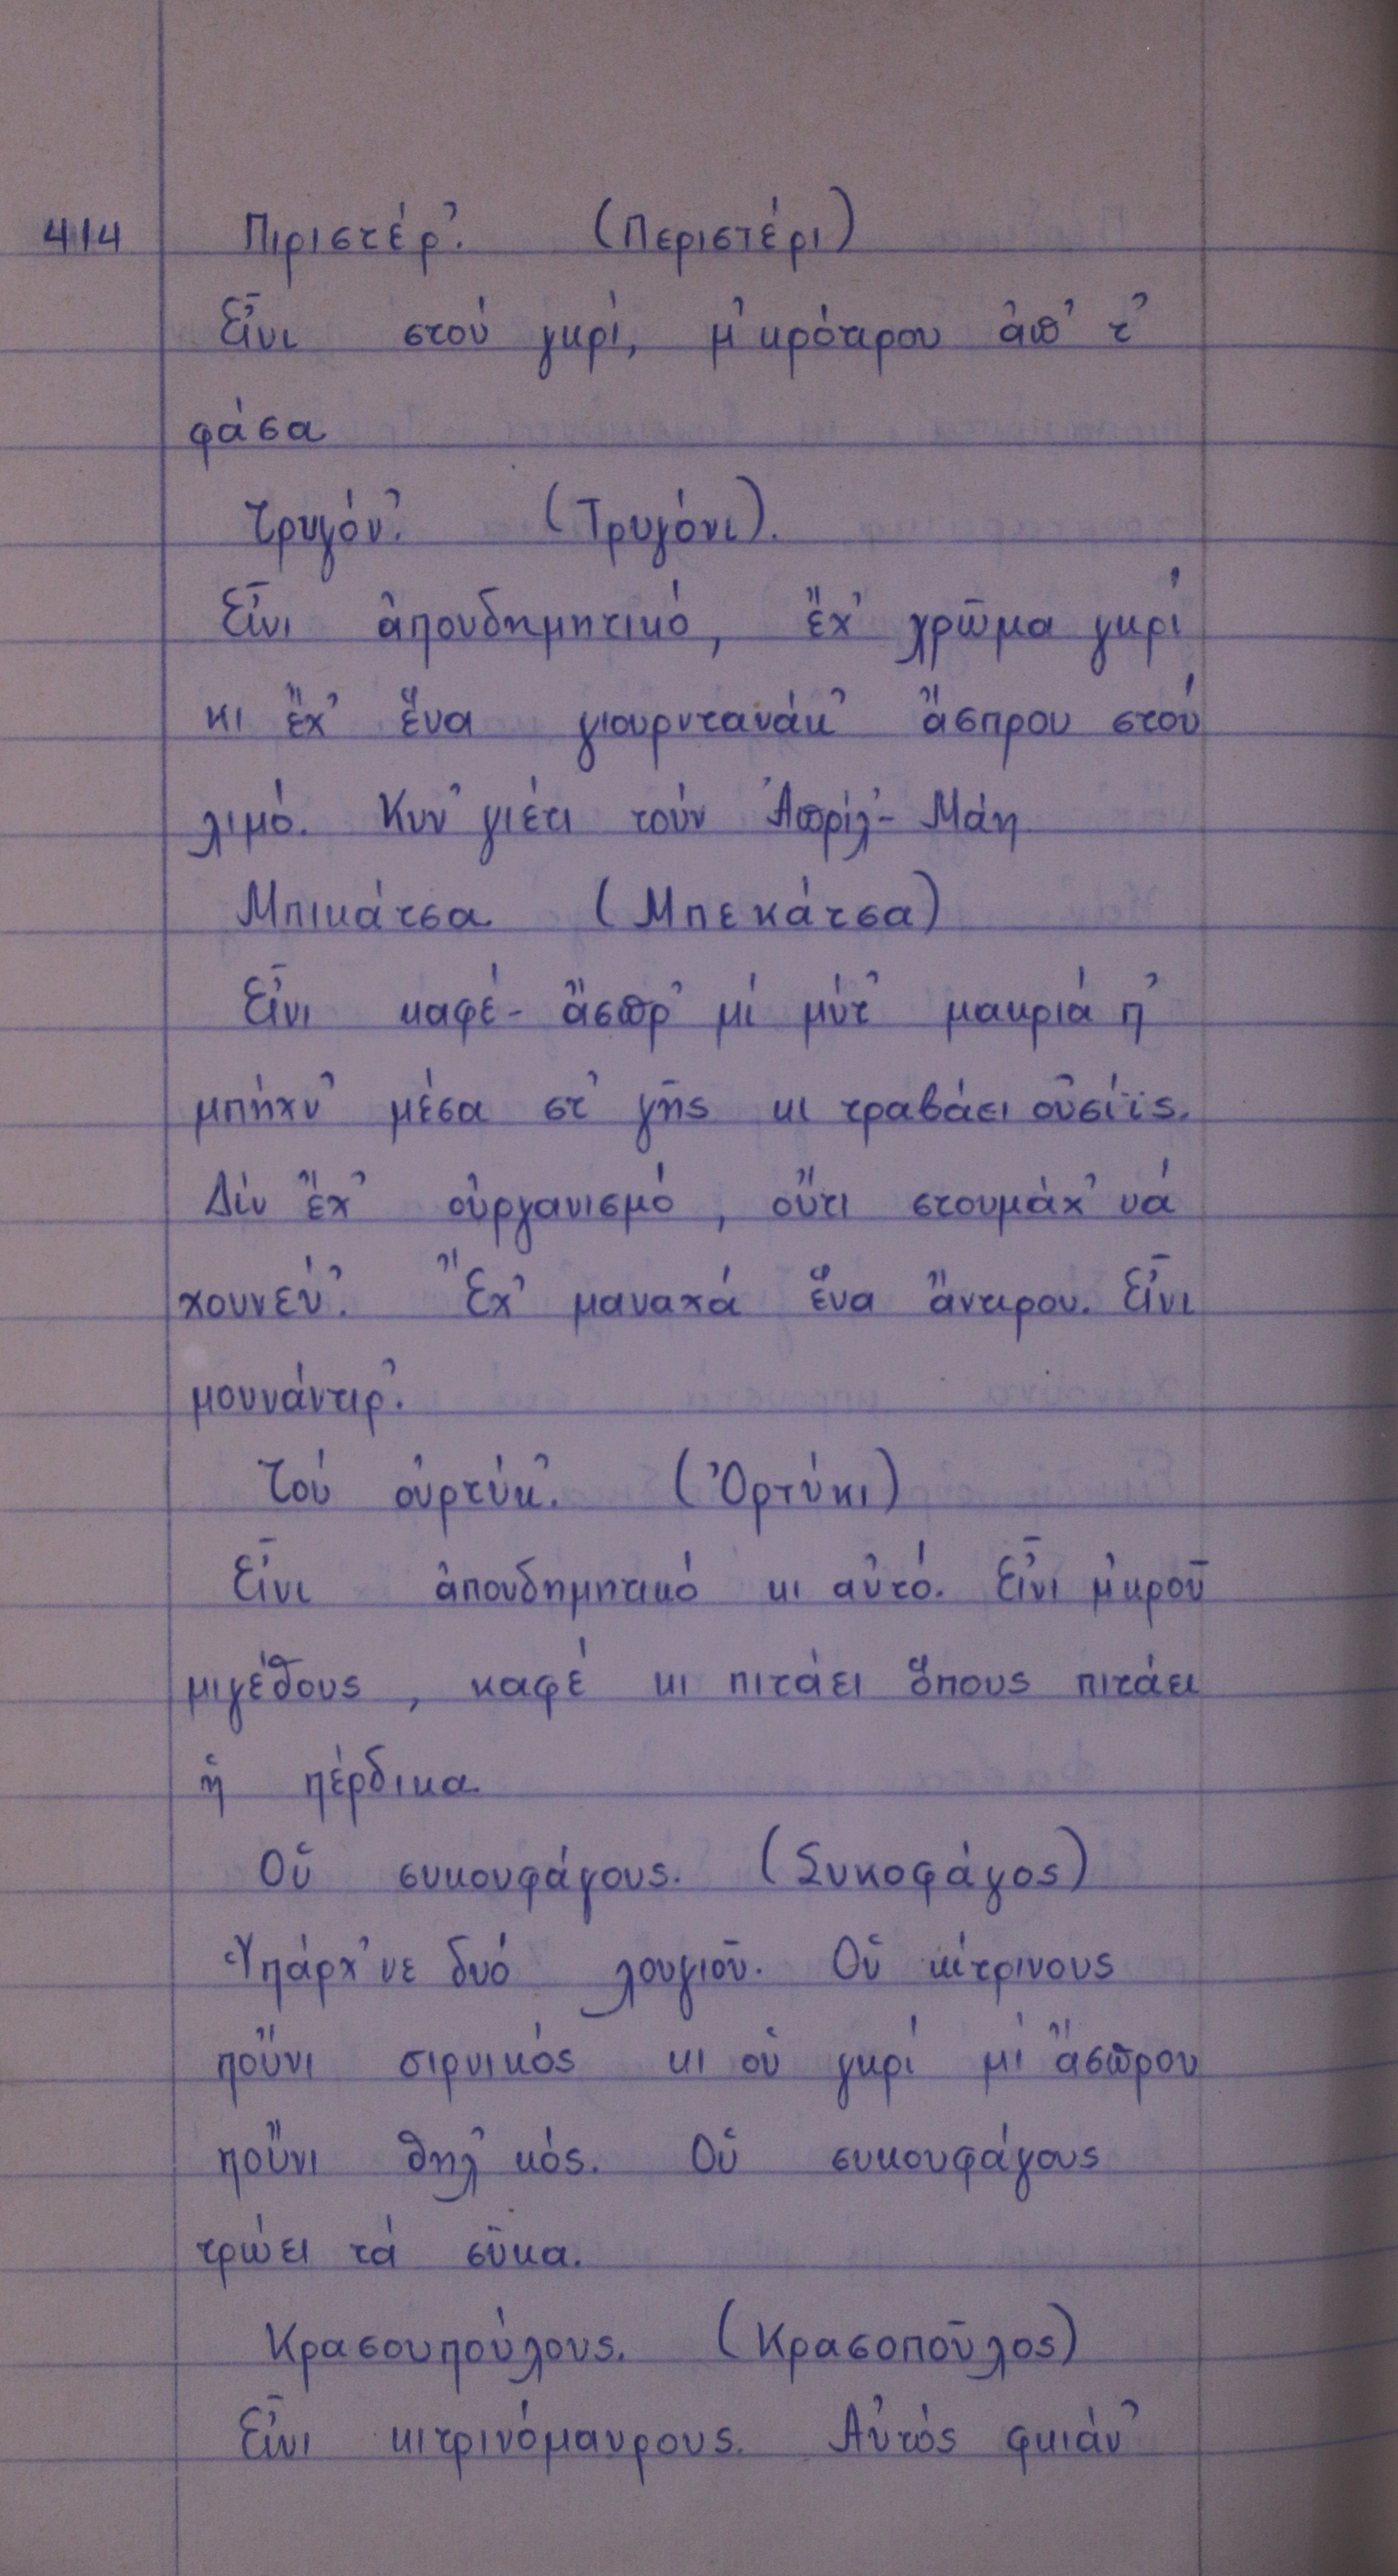 414 Πιριστέρ'. (Περιστέρι)
Εἶνι στού γκρί, μ'κρότιρου ἀπ' τ'
φάσα
Τρυγόν'. (Τρυγόνι).
Εἶνι ἀπουδημητικό, ἔχ' χρῶμα γκρί
κι ἔχ' ἕνα γιουρντανάκ' ἄσπρου στού
λιμό. Κυν'γιέτι τούν Ἀπρίλ'- Μάη
Μπικάτσα (Μπεκάτσα)
Εἶνι καφέ- ἄσπρ' μί μύτ' μακριά π'
μπήχν' μέσα στ' γῆς κι τραβάει οὐσίϊς.
Δίν ἔχ' οὐργανισμό, οὔτι στουμάχ' νά
χουνεύ'. Ἔχ' μαναχά ἕνα ἄντιρου. Εἶνι
μουνάντιρ'.
Τού οὐρτύκ'. (Ὀρτύκι)
Εἶνι ἀπουδημητικό κι αὐτό. Εἶνι μ'κροῦ
μιγέθους, καφέ κι πιτάει ὅπους πιτάει
ἡ πέρδικα.
Οὑ συκουφάγους. (Συκοφάγος)
Ὑπάρχ'νε δυό λουγιοῦ. Οὑ κίτρινους
ποὔνι σιρνικός κι οὑ γκρί μί ἄσπρου
ποὔνι θηλ'κός. Οὑ συκουφάγους
τρώει τά σῦκα.
Κρασουπούλους. (Κρασοποῦλος)
Εἶνι κιτρινόμαυρους. Αὐτός φκιάν'